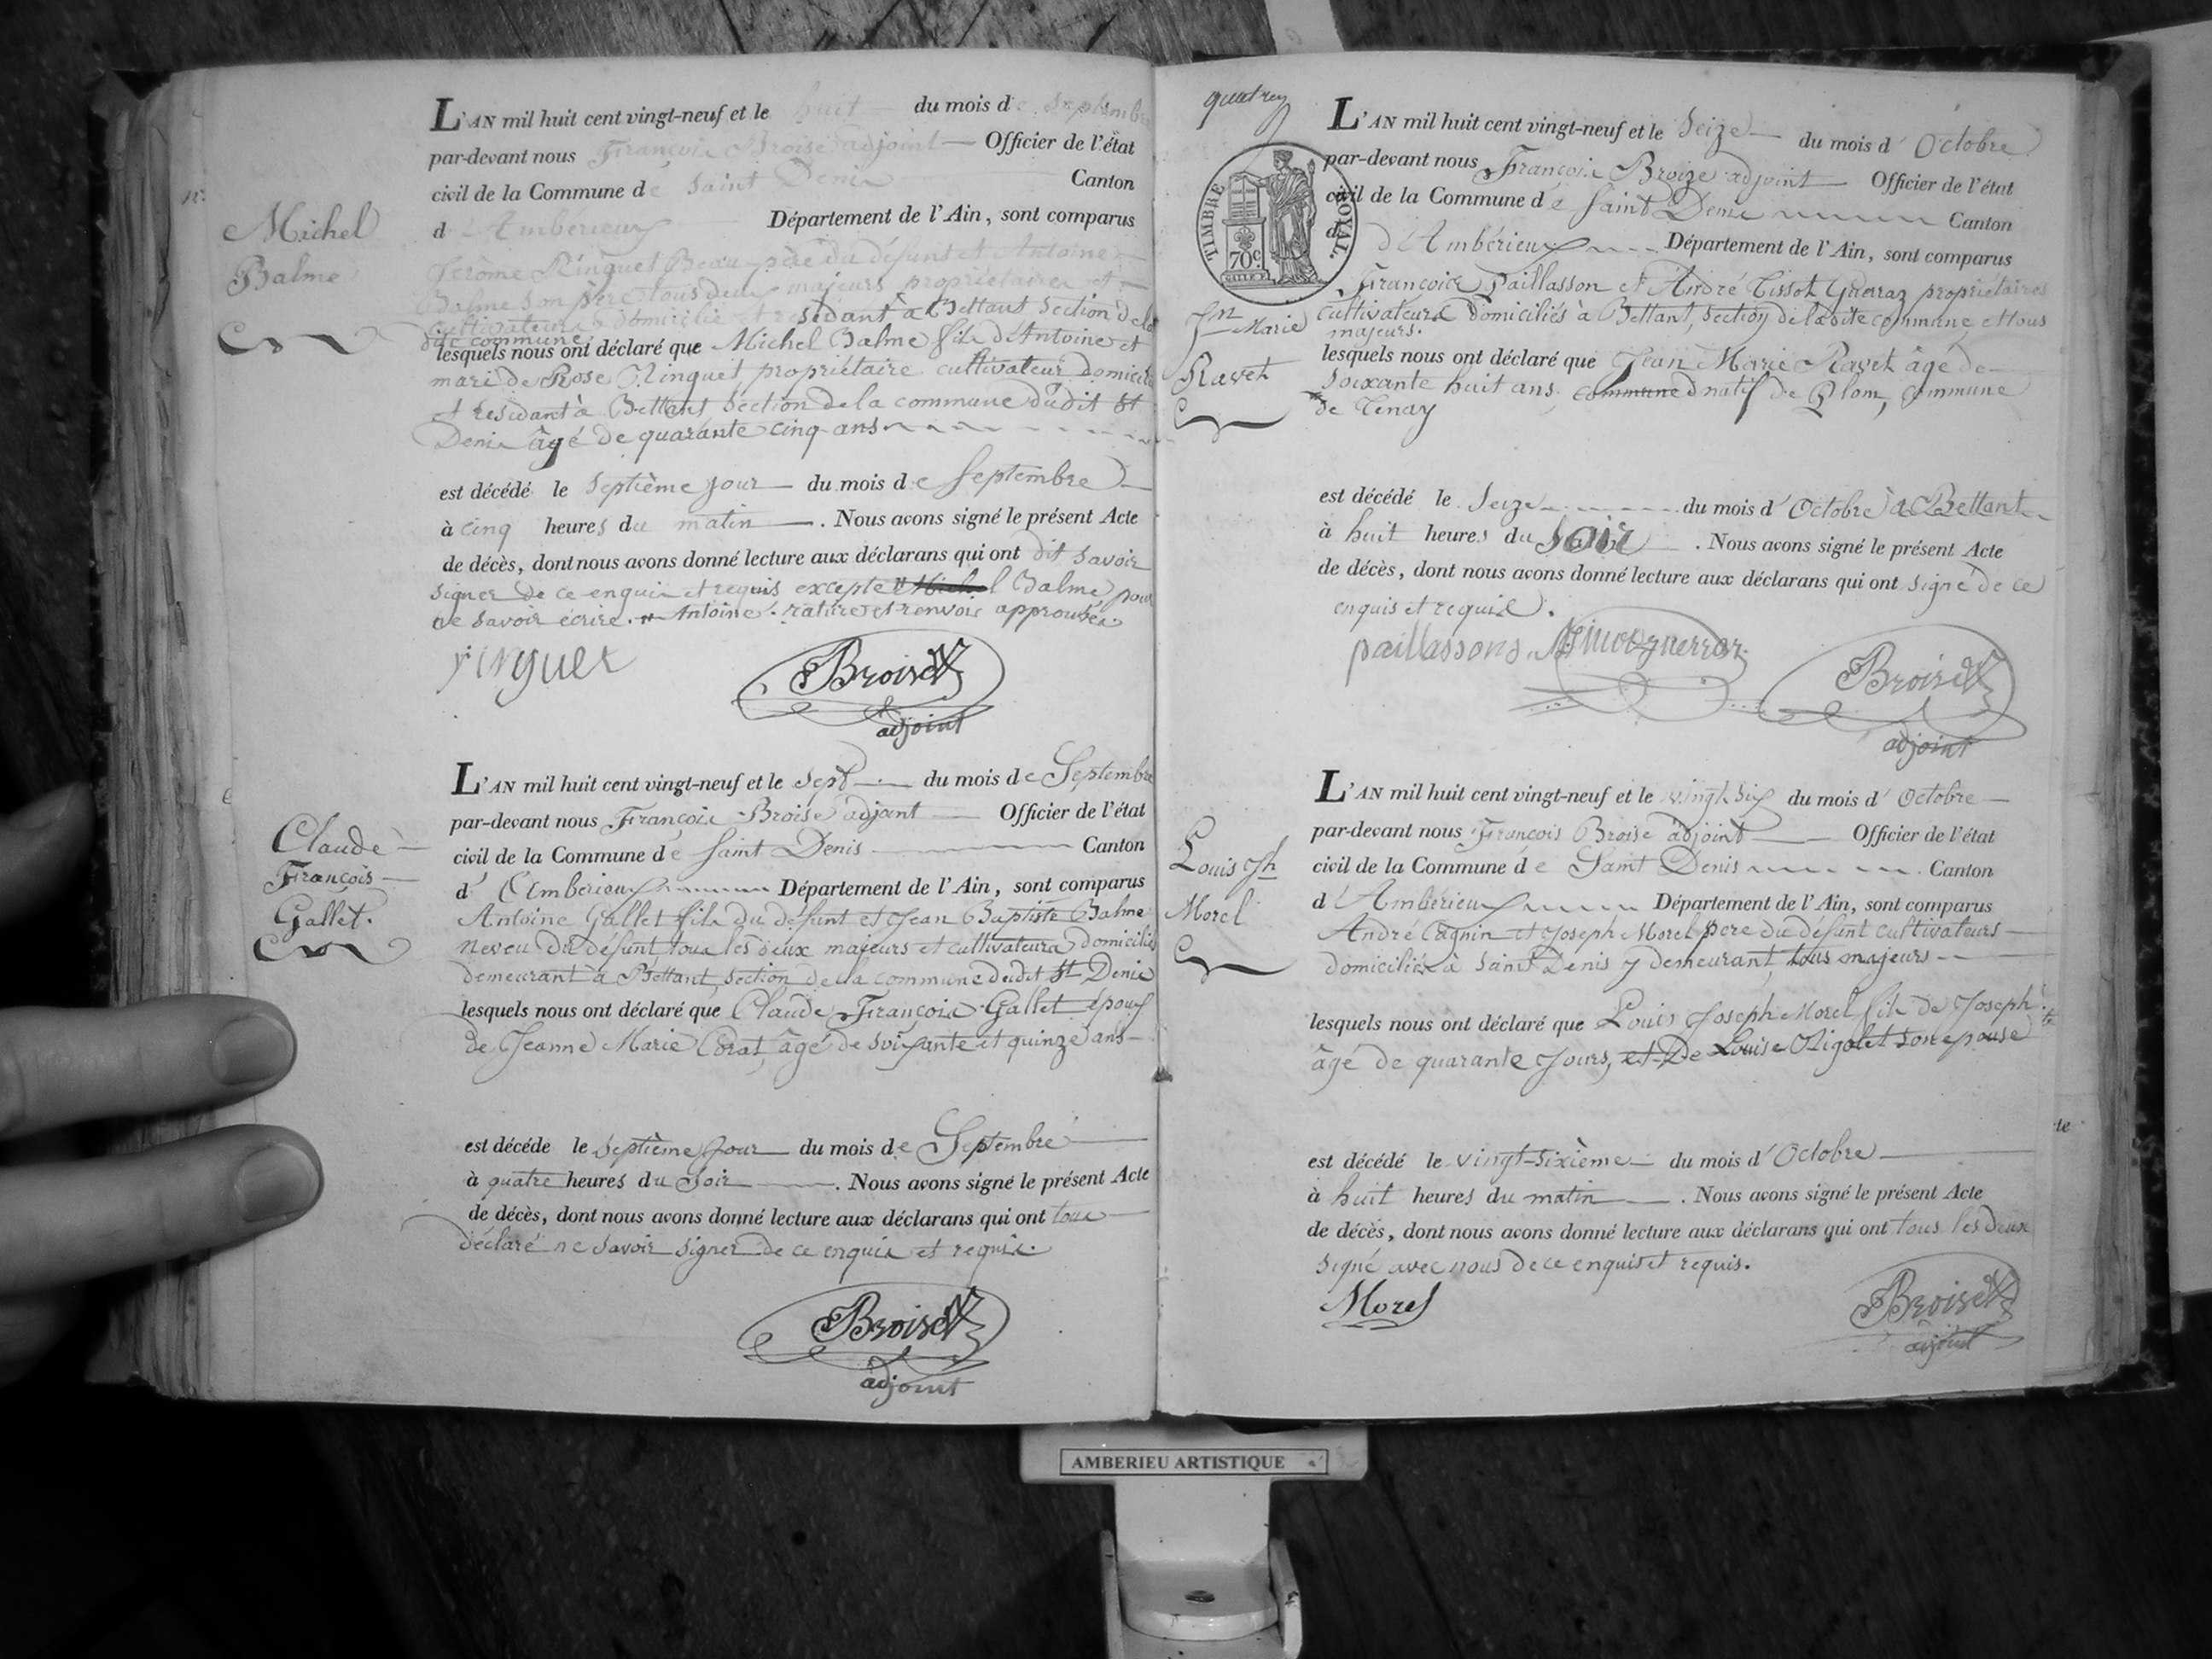 Michel
Balme
L'AN mil huit cent vingt-neuf et le huit du mois de Septembre
par-devant nous François Broise adjoint Officier de l'état
civil de la Commune de Saint Denis Canton
d'Ambérieux Département de l'Ain, sont comparus
Jerôme Ringuet Beau-père du défunt et Antoine
Balme son père tous deux majeurs propriétaires et
cultivateurs domicilié et résidant à Bettant Section de la
dite commune
lesquels nous ont déclaré que Michel Balme fils d'Antoine et
mari de Rose Ringuet propriétaire cultivateur domicilié
et residant à Bettant Section de la commune dudit St
Denis âgé de quarante cinq ans
est décédé le Septième jour du mois de Septembre
à cinq heures du matin. Nous avons signé le présent Acte
de décès, dont nous avons donné lecture aux déclarans qui ont dit savoir
signer de ce enquis et requis excepté Michel Balme pour
ne savoir écrire. Antoine. rature et renvois approuvés.
ringuet
Broise
adjoint
Claude
François
Gallet.
L'AN mil huit cent vingt-neuf et le Sept du mois de Septembre
par-devant nous François Broise adjoint Officier de l'état
civil de la Commune de Saint Denis Canton
d'Ambérieux Département de l'Ain, sont comparus
Antoine Gallet fils du défunt et Jean Baptiste Balme
neveu du défunt, tous les deux majeurs et cultivateurs domiciliés
demeurant à Bettant, Section de la commune dudit St Denis
lesquels nous ont déclaré que Claude François Gallet époux
de Jeanne Marie Corat, âgé de soixante et quinze ans
est décédé le Septième jour du mois de Septembre
à quatre heures du Soir. Nous avons signé le présent Acte
de décès, dont nous avons donné lecture aux déclarans qui ont tous
déclaré ne Savoir Signer de ce enquis et requis.
Broise
adjoint
TIMBRE ROYAL.
70c
Jn
Marie
Ravet
L'AN mil huit cent vingt-neuf et le Seize du mois d'Octobre
par-devant nous François Broize adjoint Officier de l'état
civil de la Commune de Saint Denis Canton
d d'Ambérieux Département de l'Ain, sont comparus
François Paillasson et André Tissot Guerraz propriétaires
cultivateurs domiciliés à Bettant, Section de la dite commune, et tous
majeurs.
lesquels nous ont déclaré que Jean Marie Ravet âgé de
Soixante huit ans, commune natif de Plom, Commune
de Tenay
est décédé le Seize du mois d'Octobre à Bettant
à huit heures du Soir. Nous avons signé le présent Acte
de décès, dont nous avons donné lecture aux déclarans qui ont signé de ce
enquis et requis.
paillassons
Broise
adjoint
Louis Jh
Morel
L'AN mil huit cent vingt-neuf et le vingt Six du mois d'Octobre
par-devant nous François Broise adjoint Officier de l'état
civil de la Commune de Saint Denis Canton
d'Ambérieux Département de l'Ain, sont comparus
André Cagnin et Joseph Morel père du défunt cultivateurs
domiciliés à Saint Denis y demeurant, tous majeurs
lesquels nous ont déclaré que Louis Joseph Morel fils de Joseph
âgé de quarante Jours, et De Louise Oligolet son epouse
est décédé le vingt-Sixième du mois d'Octobre
à huit heures du matin. Nous avons signé le présent Acte
de décès, dont nous avons donné lecture aux déclarans qui ont tous les deux
signé avec nous de ce enquis et requis.
Morel
Broise
adjoint
AMBERIEU ARTISTIQUE